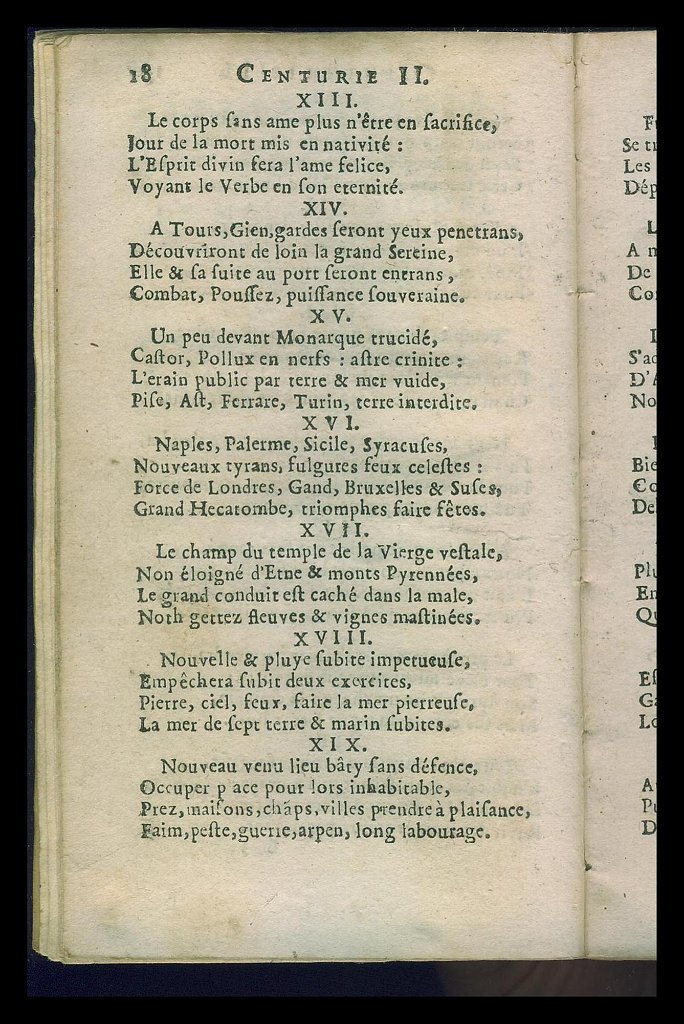 18 CENTURIE II.
XIII.
Le corps sans ame plus n'être en sacrifice,
Jour de la mort mis en nativité :
L'Esprit divin fera l'ame felice,
Voyant le Verbe en son eternité.
XIV.
A Tours, Gien, gardes seront yeux penetrans,
Découvriront de loin la grand Sereine,
Elle & sa suite au port seront entrans,
Combat, Poussez, puissance souveraine.
XV.
Un peu devant Monarque trucidé,
Castor, Pollux en nerfs : astre crinite :
L'erain public par terre & mer vuide,
Pise, Ast, Ferrare, Turin, terre interdite.
XVI.
Naples, Palerme, Sicile, Syracuses,
Nouveaux tyrans, fulgures feux celestes :
Force de Londres, Gand, Bruxelles & Suses,
Grand Hecatombe, triomphes faire fêtes.
XVII.
Le champ du temple de la Vierge vestale,
Non éloigné d'Etne & monts Pyrennées,
Le grand conduit est caché dans la male,
Noth gettez fleuves & vignes mastinées.
XVIII.
Nouvelle & pluye subite impetueuse,
Empêchera subit deux exercites,
Pierre, ciel, feux, faire la mer pierreuse,
La mer de sept terre & marin subites.
XIX.
Nouveau venu lieu bâty sans défence,
Occuper p ace pour lors inhabitable,
Prez, maisons, chāps, villes prendre à plaisance,
Faim, peste, guerre, arpen, long labourage.
Se
Les
Dép
A
De
S'a
D'A
No
Bie
Co
De
Plu
En
Qu
Ga
Lo
A
D